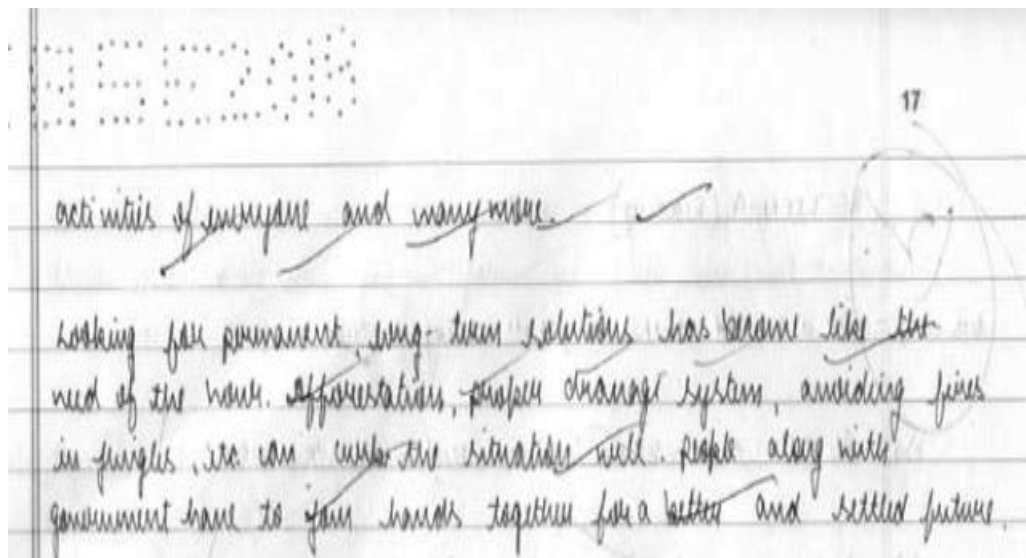 17
activities of everyone and many more.
Looking for permanent, long-term solutions has become like the
need of the hour. Afforestation, proper drainage system, avoiding fires
in jungles, etc can curb the situation well. People along with
government have to join hands together for a better and settled future.